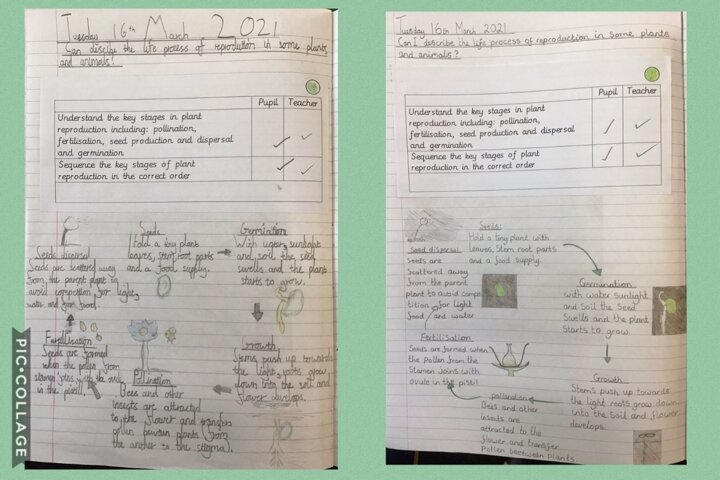 Tuesday 16th March 2021
Can I describe the life process of reproduction in some plants
and animals?
Pupil Teacher
Understand the key stages in plant
reproduction including: pollination,
fertilisation, seed production and dispersal
and germination
Sequence the key stages of plant
reproduction in the correct order
Seeds
Hold a tiny plant
leaves, stem, root parts
and a food supply.
Germination
With water, sunlight
and soil, the seed
swells and the plant
starts to grow.
Growth
Stems push up towards
the light, roots grow
down into the soil and
flower develops.
Pollination
Bees and other
insects are attracted
to the flower and transfer
pollen between plants (from
the anther to the stigma).
Fertilisation
Seeds are formed
when the pollen from
stamen joins with the
in the pistil.
Seeds dispersal
Seeds are scattered away
from the parent plant to
avoid competition for light,
water and food.
PIC•COLLAGE
Tuesday 16th March 2021
Can I describe the life process of reproduction in some plants
and animals?
Pupil Teacher
Understand the key stages in plant
reproduction including: pollination,
fertilisation, seed production and dispersal
and germination
Sequence the key stages of plant
reproduction in the correct order
Seeds:
Hold a tiny plant with
leaves, Stem root parts
and a food supply.
Germination
with water sunlight
and Soil the Seed
Swells and the plant
Starts to grow.
Growth
Stems push up towards
the light roots grow down
into the soil and flower
develops.
pollination
Bees and other
insects are
attracted to the
flower and transfer
Pollen between plants.
Fertilisation
Seeds are formed when
the pollen from the
Stamen Joins with
ovule in the pistil
Seed dispersal
Seeds are
Scattered away
from the parent
plant to avoid comp
tition for light
food and water